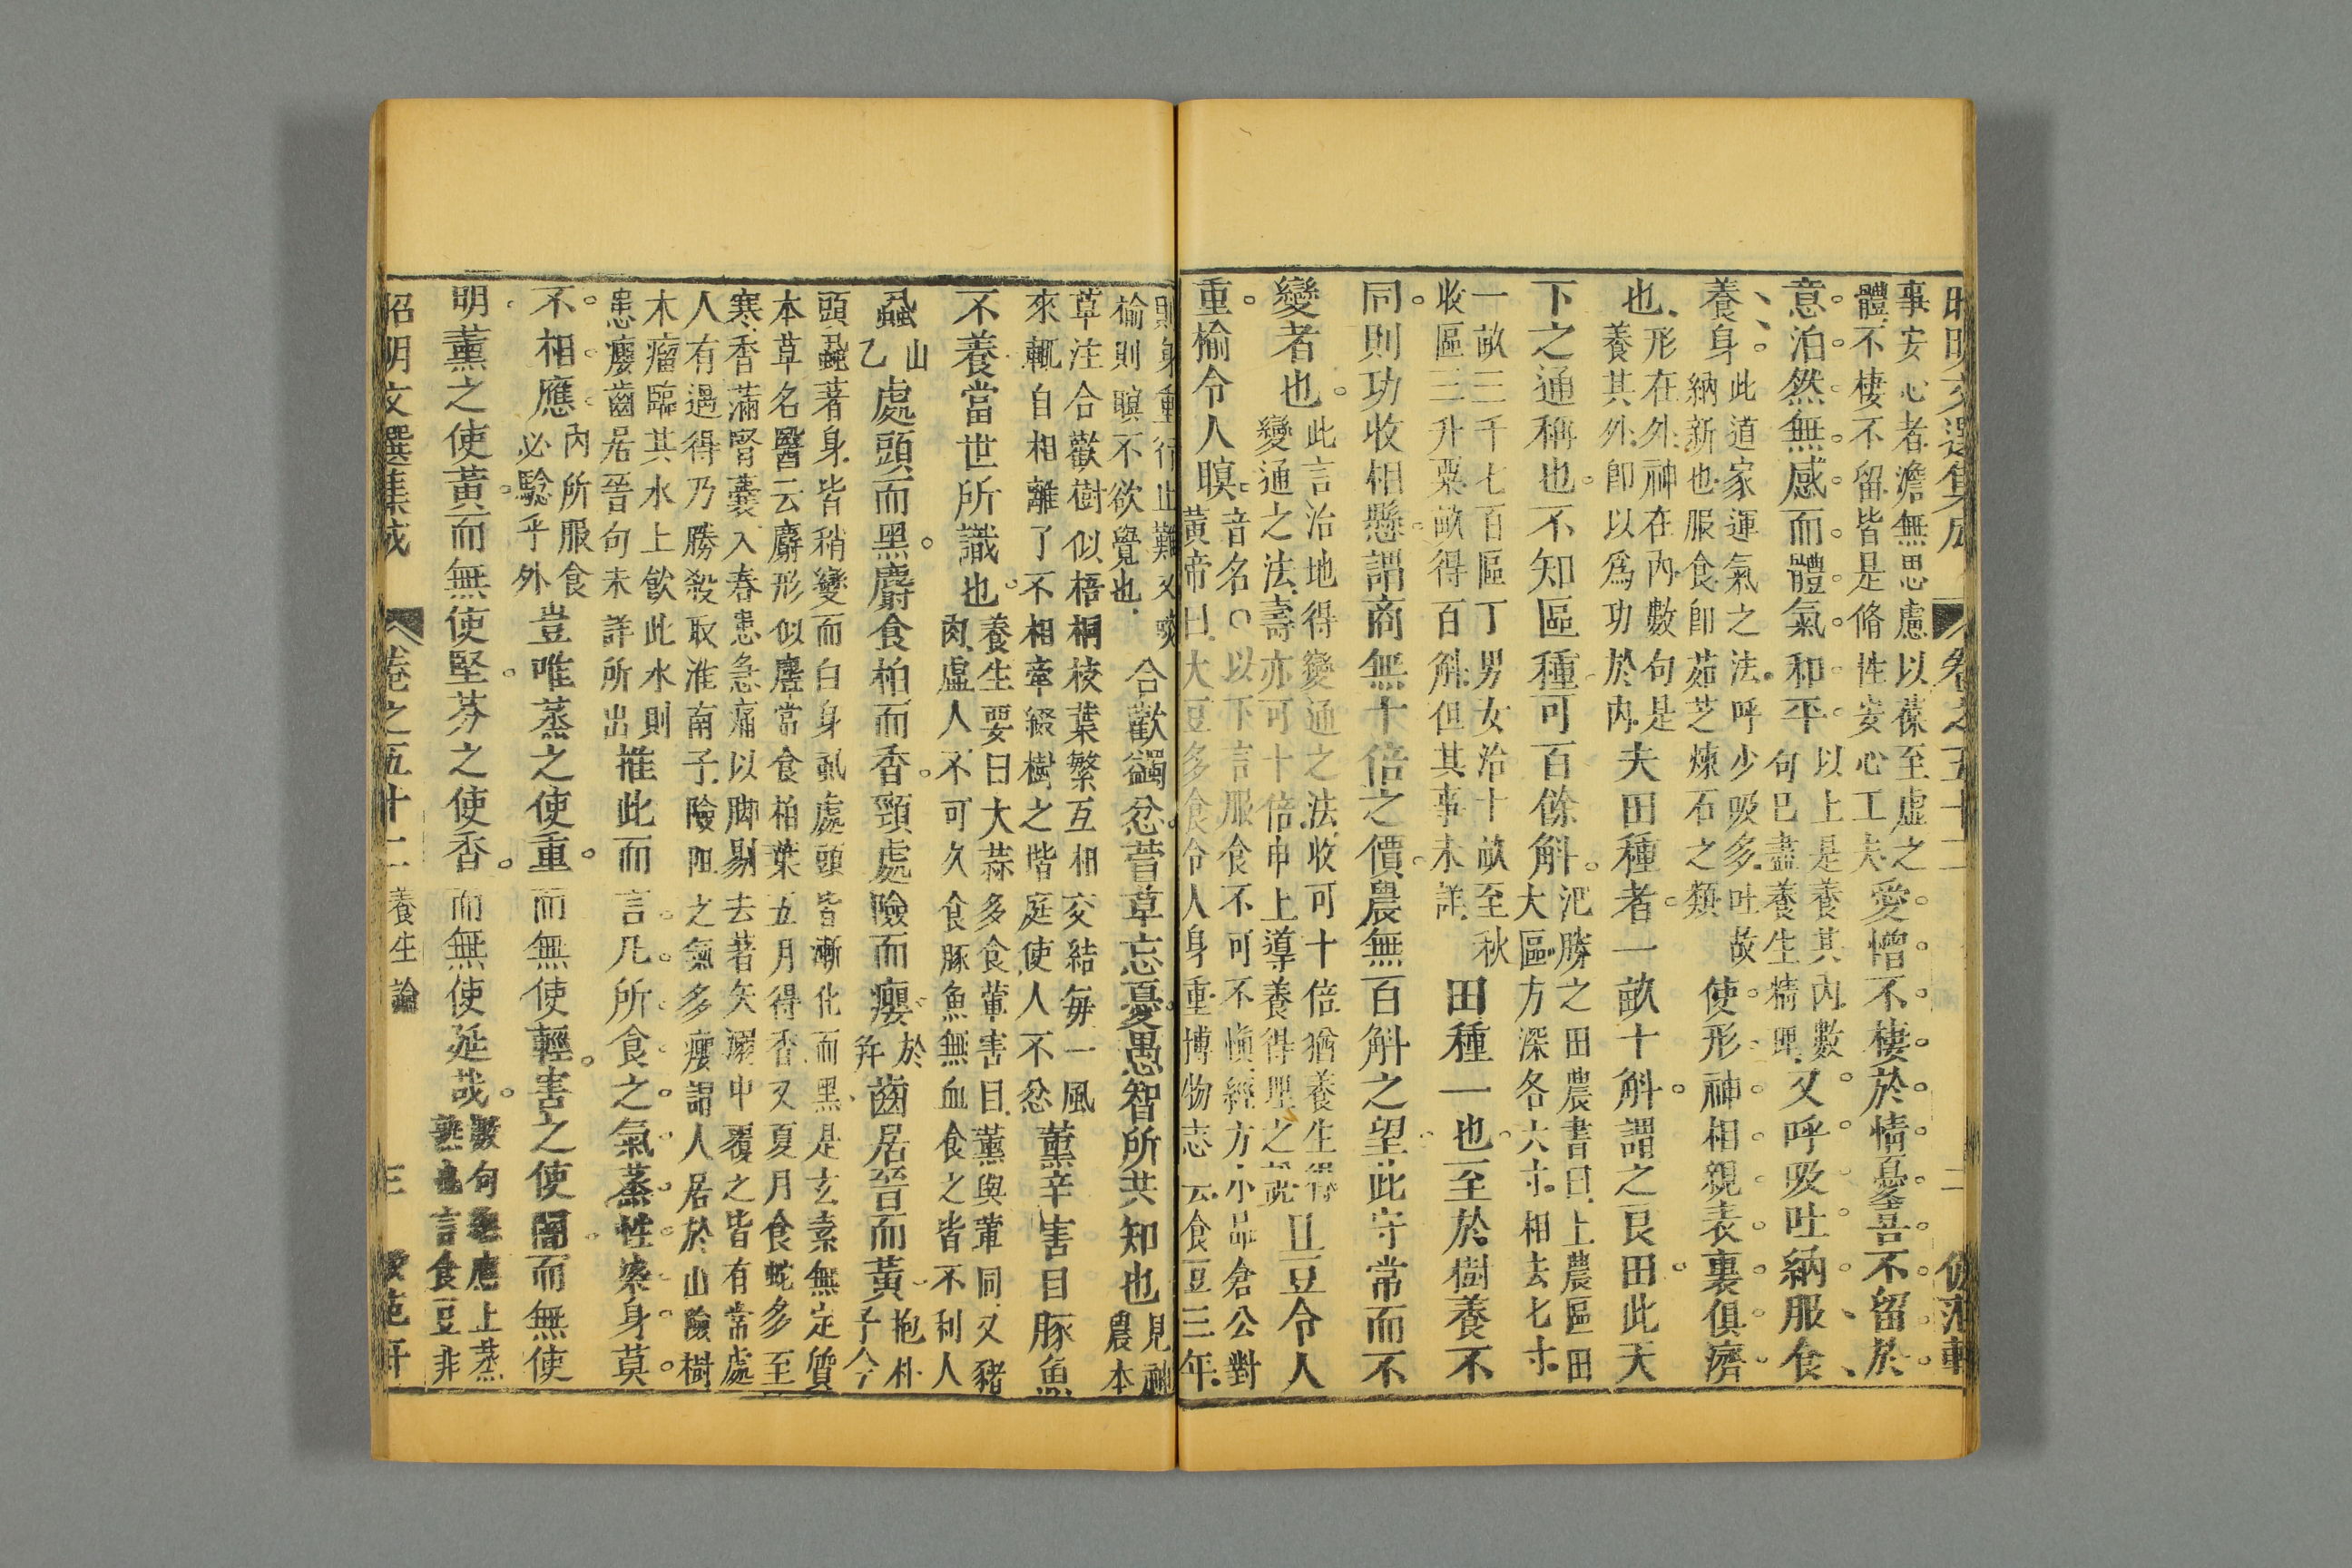 昭明文選集成 卷之五十二 二 倣范軒
事安心者澹無思慮以葆至虛之
體不棲不留皆是脩性安心工夫
愛憎不棲於情憂喜不留於
意泊然無感而體氣和平
以上是養其內數
句已盡養生精理
又呼吸吐納服食
養身
此道家運氣之法呼少吸多吐故
納新也服食卽茹芝煉石之類
使形神相親表裏俱濟
也
形在外神在內數句是
養其外卽以爲功於內
夫田種者一畝十斛謂之良田此天
下之通稱也不知區種可百餘斛
汜勝之田農書曰上農區田
大區方深各六寸相去七寸
一畝三千七百區丁男女治十畝至秋
收區三升粟畝得百斛但其事未詳
田種一也至於樹養不
同則功收相懸謂商無十倍之價農無百斛之望此守常而不
變者也
此言治地得變通之法收可十倍猶養生得
變通之法壽亦可十倍申上導養得理之說
且豆令人
重榆令人瞑
音名○以下言服食不可不慎經方小品倉公對
黃帝曰大豆多食令人身重博物志云食豆三年
則身重行止難又啖
榆則瞑不欲覺也
合歡蠲忿萱草忘憂愚智所共知也
見神
農本
草注合歡樹似梧桐枝葉繁互相交結每一風
來輒自相離了不相牽綴樹之堦庭使人不忿
薰辛害目豚魚
不養當世所識也
養生要曰大蒜多食葷害目薰與葷同又豬
肉虛人不可久食豚魚無血食之皆不利人
蝨
山
乙
處頭而黑麝食柏而香頸處險而癭
於
筓
齒居晉而黃
抱朴
子今
頭蝨著身皆稍變而白身虱處頭皆漸化而黑是玄素無定質
本草名醫云麝形似麞常食柏葉五月得香又夏月食蛇多至
寒香滿腎囊入春患急痛以脚剔去著矢溺中覆之皆有常處
人有遇得乃勝殺取淮南子險阻之氣多癭謂人居於山險樹
木瘤臨其水上飲此水則
患癭齒居晉句未詳所出
推此而言凡所食之氣蒸性染身莫
不相應
內所服食
必騐乎外
豈唯蒸之使重而無使輕害之使闇而無使
明薰之使黃而無使堅芬之使香而無使延哉
數句應上蒸
言食豆非
昭明文選集成 卷之五十二 養生論 三 倣范軒